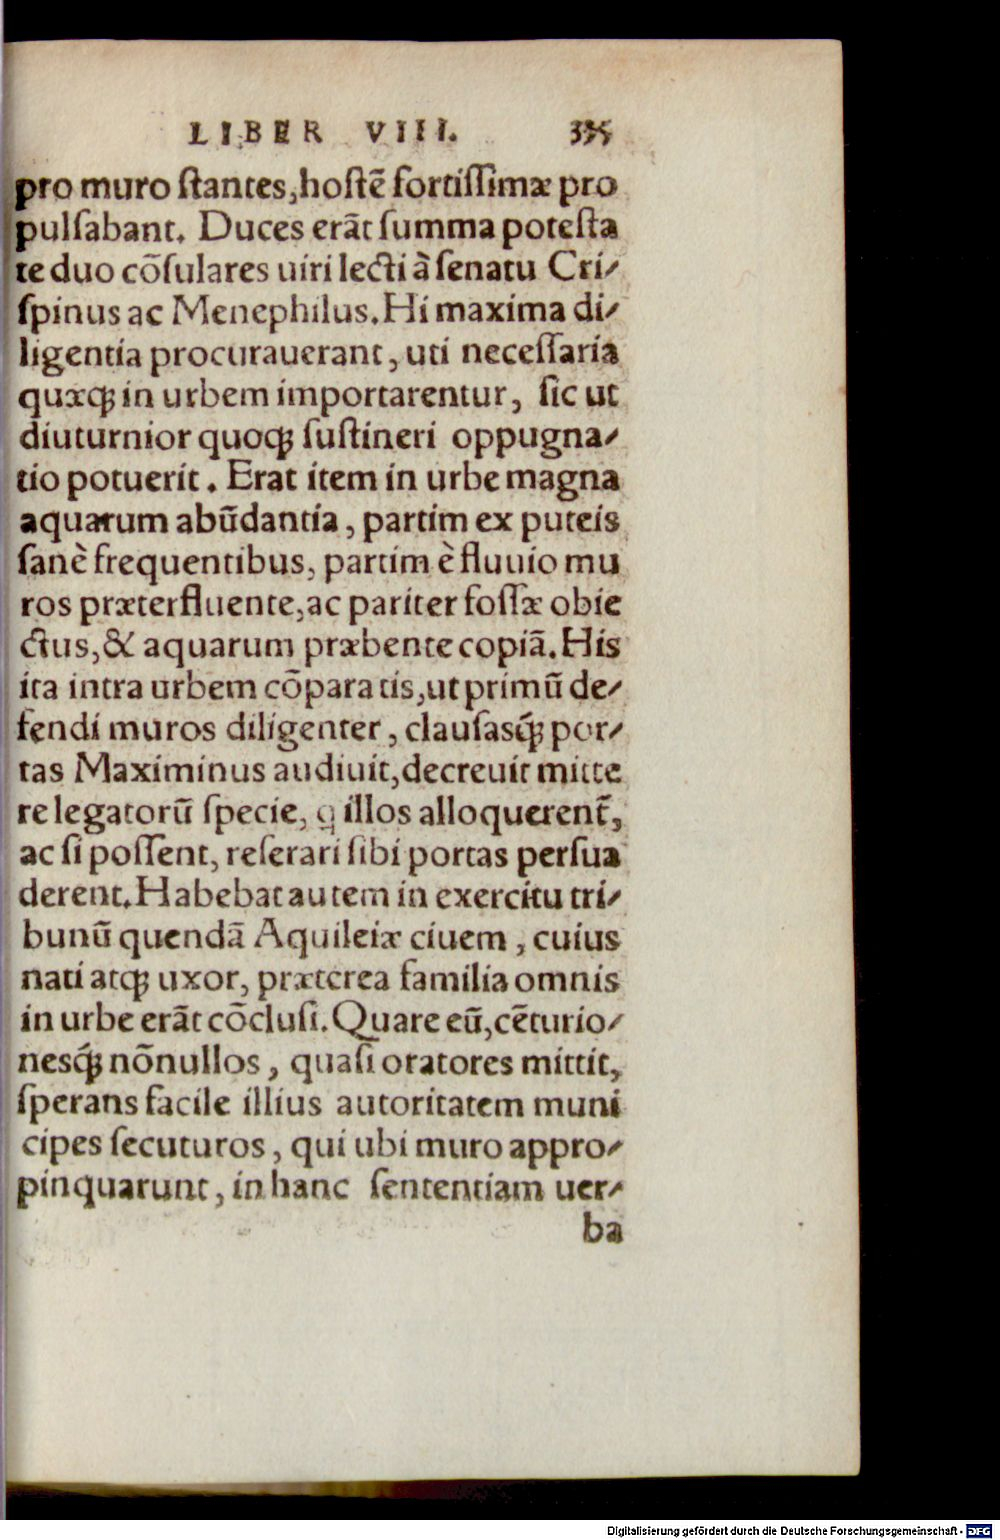 LIBER VIII. 335
pro muro ſtantes, hoſtē fortiſſimæ pro
pulſabant. Duces erāt ſumma poteſta
te duo cōſulares uiri lecti à ſenatu Cri⸗
ſpinus ac Menephilus. Hi maxima di⸗
ligentia procurauerant, uti neceſſaria
quæꝗ; in urbem importarentur, ſic ut
diuturnior quoꝗ; ſuſtineri oppugna⸗
tio potuerit. Erat item in urbe magna
aquarum abūdantia, partim ex puteis
ſanè frequentibus, partim è fluuio mu
ros præterfluente, ac pariter foſſæ obie
ctus, & aquarum præbente copiā. His
ita intra urbem cōparatis, ut primū de⸗
fendi muros diligenter, clauſasꝗ́; por⸗
tas Maximinus audiuit, decreuit mitte
re legatorū ſpecie, q illos alloquerent᷑,
ac ſi poſſent, reſerari ſibi portas perſua
derent. Habebat autem in exercitu tri⸗
bunū quendā Aquileiæ ciuem, cuius
nati atꝗ; uxor, præterea familia omnis
in urbe erāt cōcluſi. Quare eū, cēturio⸗
nesꝗ́; nōnullos, quaſi oratores mittit,
ſperans facile illius autoritatem muni
cipes ſecuturos, qui ubi muro appro⸗
pinquarunt, in hanc ſententiam uer⸗
ba
Digitalisierung gefördert durch die Deutsche Forschungsgemeinschaft - DFG